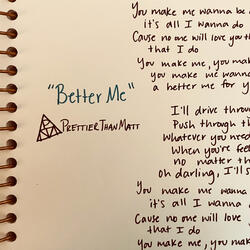 "Better Me"
PrettierThanMatt
You make me wanna be
it's all I wanna do
Cause no one will love you th
that I do
You make me, you mak
you make me wanna
a better me for y
I'll drive throu
Push through t
Whatever you need
When you're feel
no matter th
Oh darling, I'll s
You make me wanna
it's all I wanna
Cause no one will love
that I do
You make me, you m